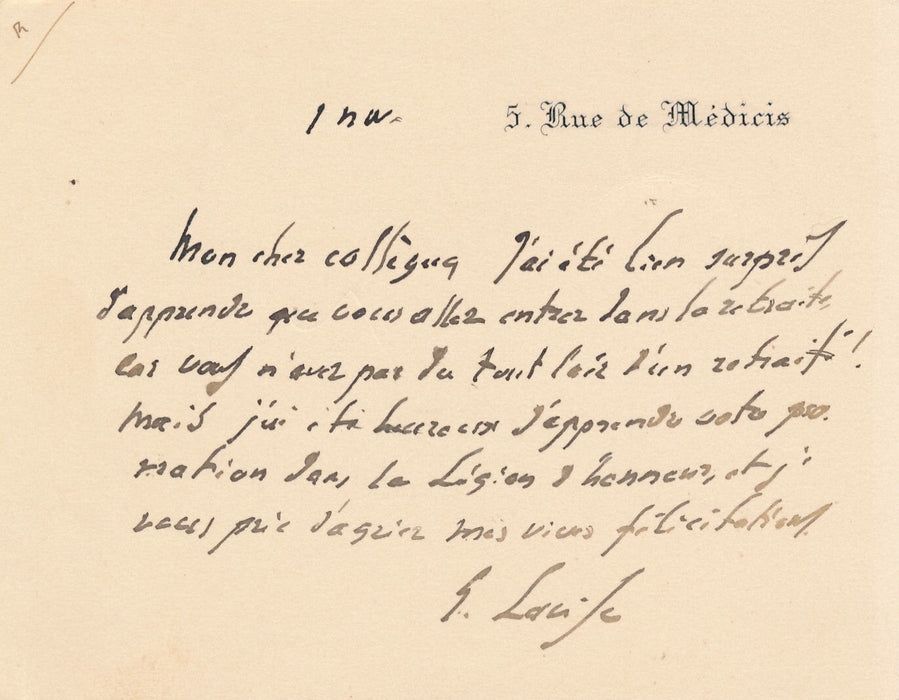 R
1 nov. 5. Rue de Médicis
Mon cher collègue J'ai été bien surpris
d'apprendre que vous allez entrer dans la retraite,
car vous n'avez pas du tout l'air d'un retraité !
Mais j'ai été heureux d'apprendre votre pro-
motion dans la Légion d'honneur, et j'
vous prie d'agréer mes vives félicitations
E. Lavisse